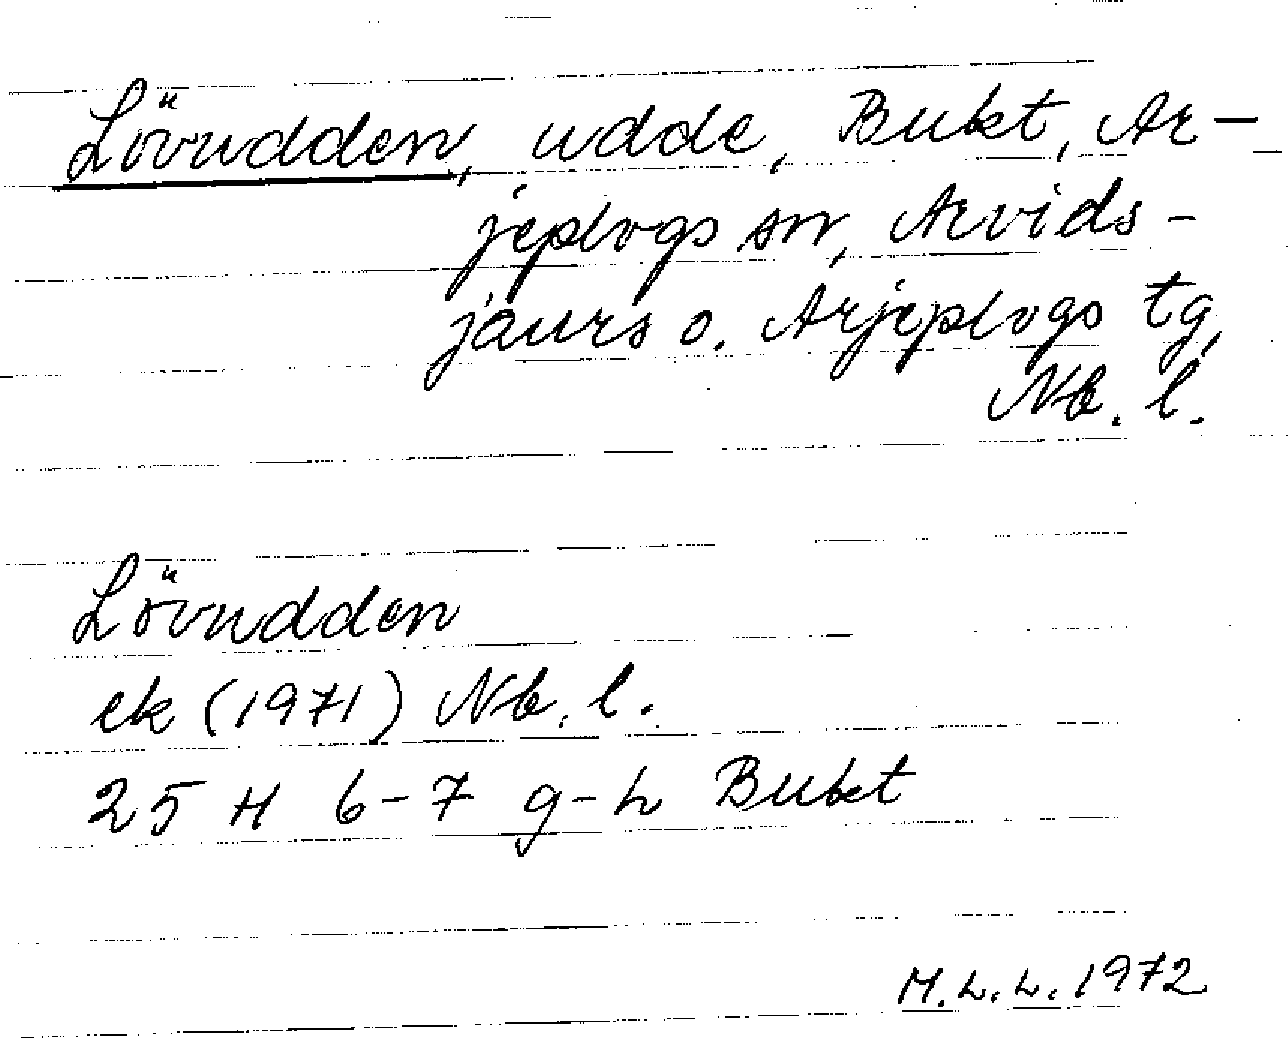 Lövudden, udde, Bukt, Ar-
jeplogs sn, Arvids-
jaurs o. Arjeplogs tg,
Nb. l.
Lövudden
ek (1971) Nb. l.
25 H 6-7 g-h Bukt
M.L.L. 1972